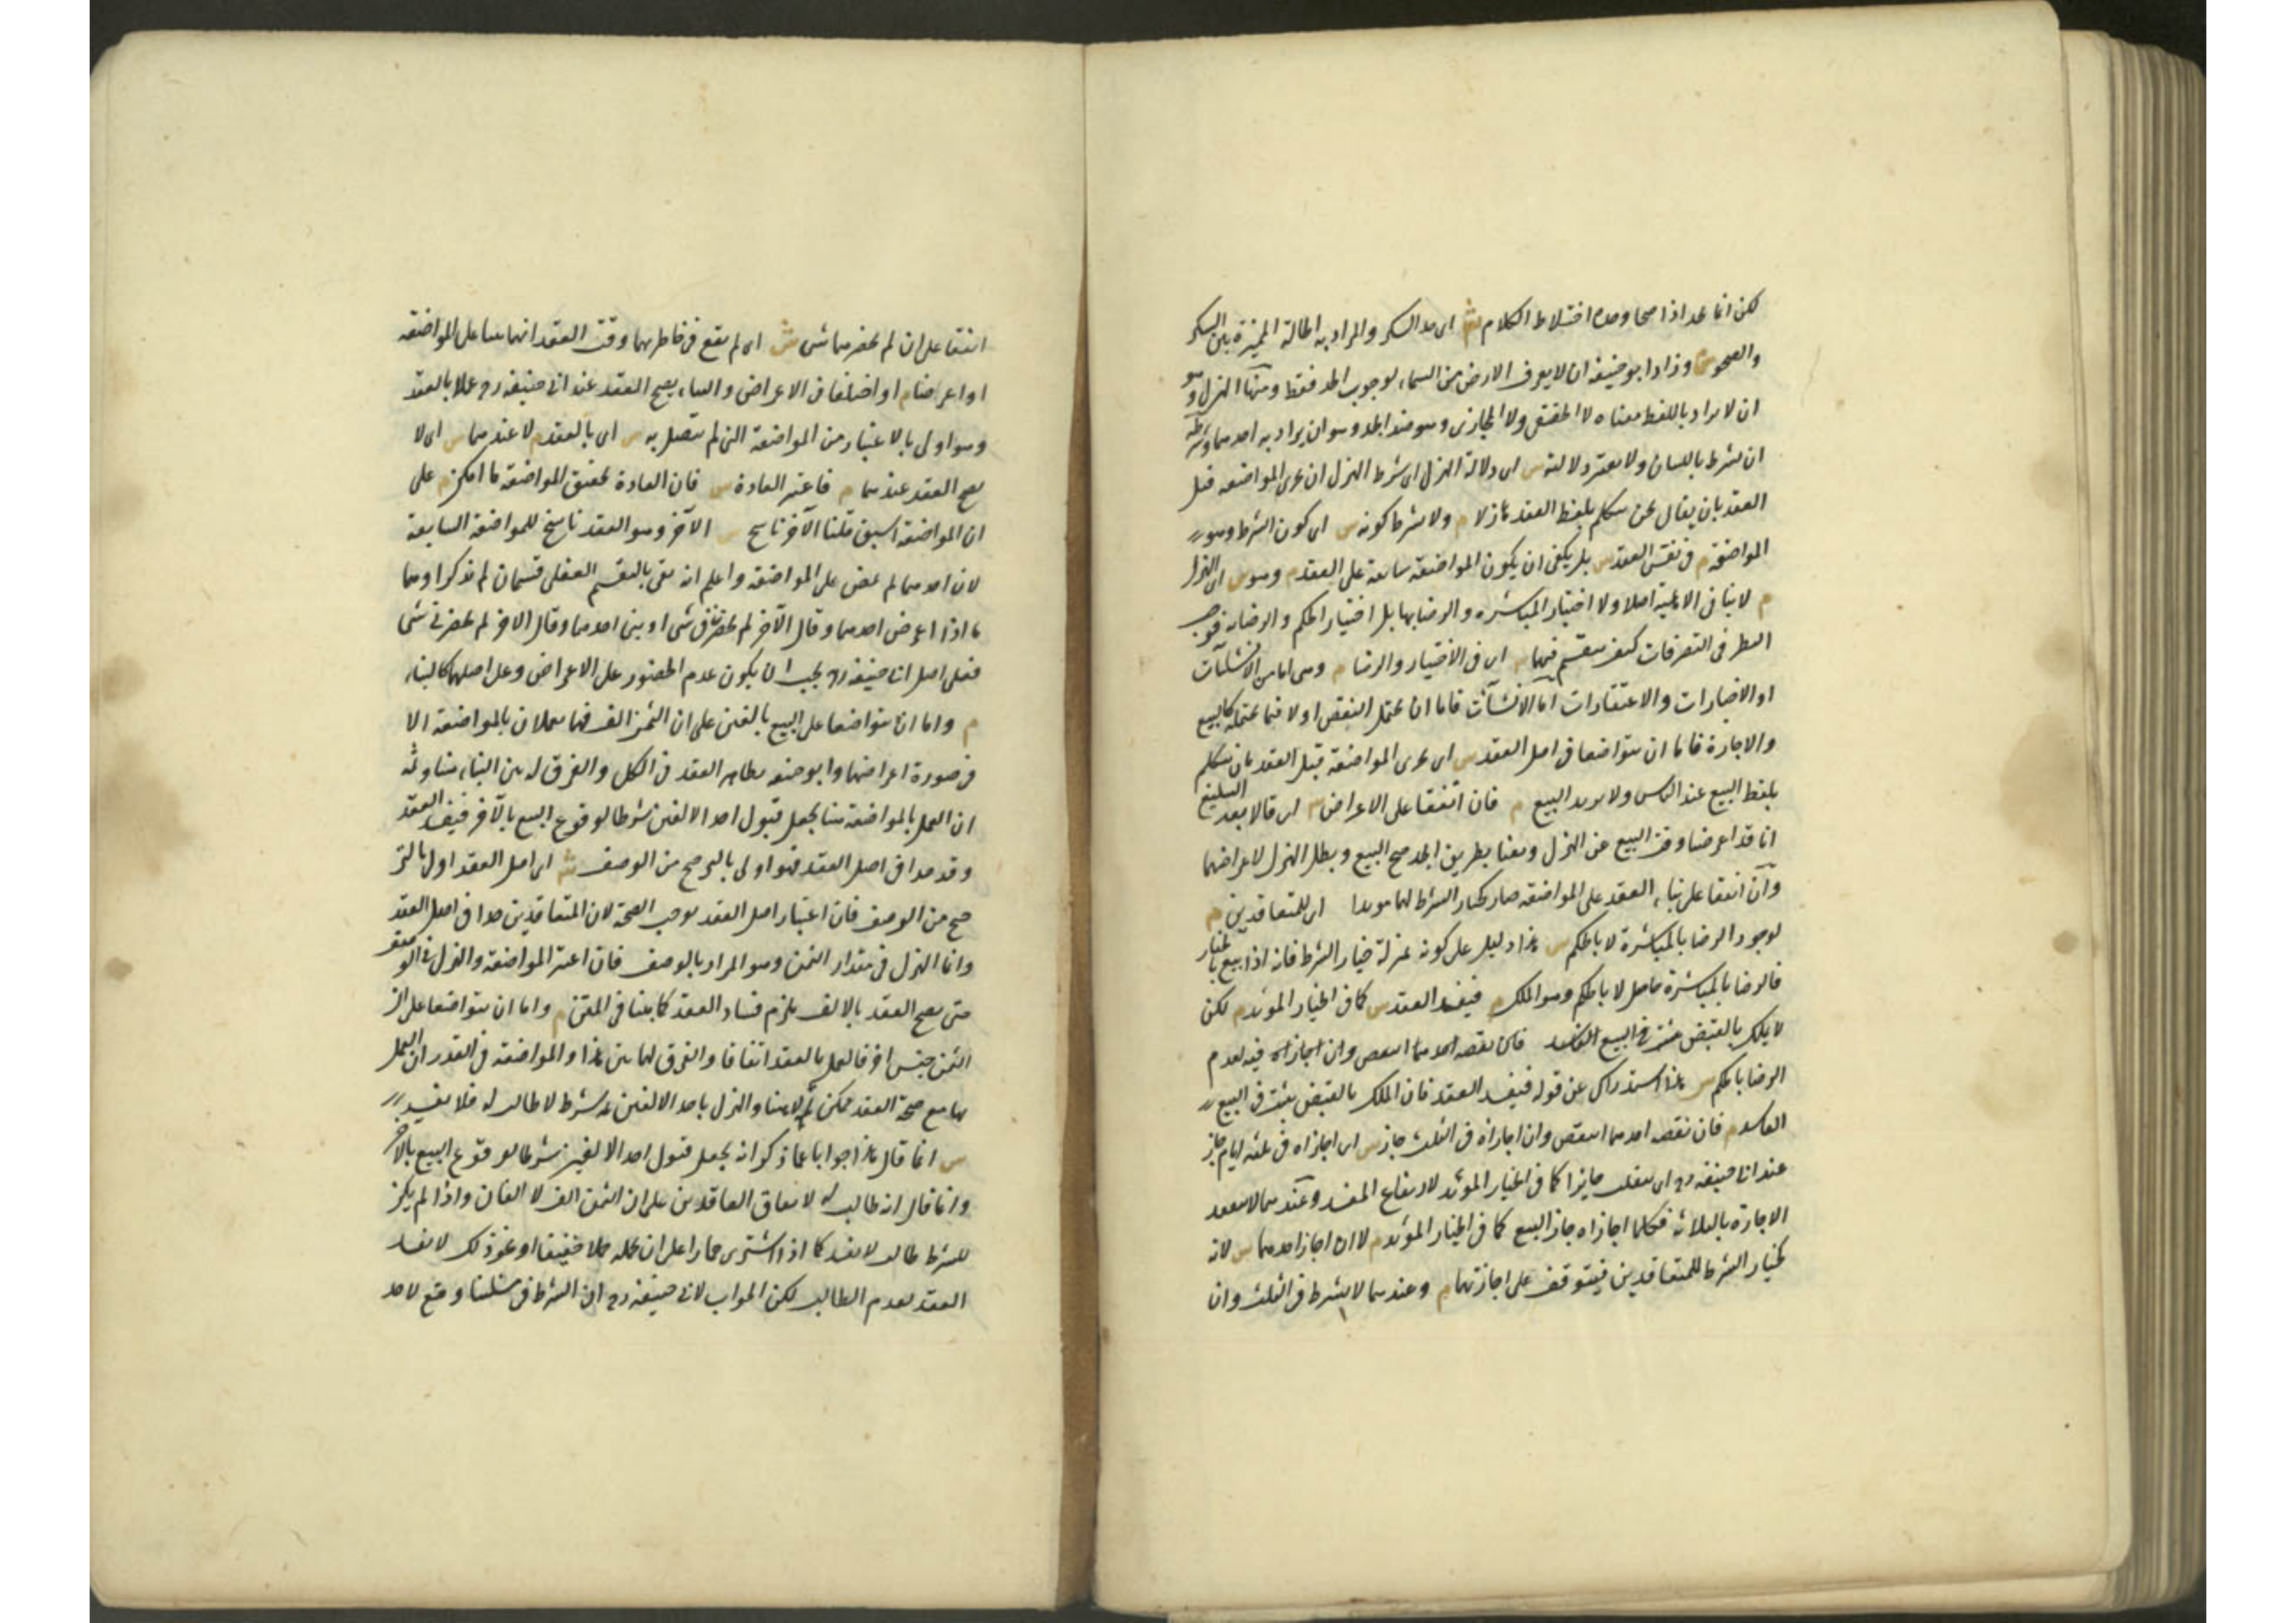 لكن انما يحد اذا صحا وحده اختلاط الكلام ش اى حد السكر والمراد به الحالة المميزة بين السكر
والصحو وزاد ابو حنيفة ان لا يعرف الارض من السماء لوجوب الحد فقط ومنها الهزل وهو
ان لا يراد باللفظ معناه لا الحقيقى ولا المجازى وهو ضد الجد وهو ان يراد به احدهما وشرطه
ان يشترط باللسان ولا يعتبر دلالته س اى دلالة الهزل اى شرط الهزل ان يجرى المواضعه قبل
العقد بان يقال نحن نتكلم بلفظ العقد هازلا م ولا يشرط كونه س اى كون الشرط وهو
المواضعة م فى نفس العقد س بل يكفى ان يكون المواضعة سابقة على العقد م وهو س اى الهزل
م لا ينافى الاهلية اصلا ولا اختيار المباشرة والرضا بها بل اختيار الحكم والرضا به فوجب
النظر فى التصرفات كيف ينقسم فيهما اى فى الاختيار والرضا م وهى اما من الانشاآت
او الاخبارات والاعتقادات اما الانشاآت فاما ان يحتمل النقض او لا فما يحتمله كالبيع
والاجارة فاما ان يتواضعا فى اصل العقد س اى يجرى المواضعة قبل العقد بان نتكلم
بلفظ البيع عند الناس ولا نريد البيع م فان اتفقا على الاعراض اى قالا بعد البيع
انا قد اعرضنا وقت البيع عن الهزل وبعنا بطريق الجد صح البيع وبطل الهزل لاعراضهما
وان اتفقا على بناء العقد على المواضعة صار كخيار الشرط لهما مؤبدا اى للمتعاقدين م
لوجود الرضا بالمباشرة لا بالحكم س هذا دليل على كونه بمنزلة خيار الشرط فانه اذا بيع بالخيار
فالرضا بالمباشرة حاصل لا بالحكم وهو الملك م فيفسد العقد س كما فى الخيار المؤبد م لكن
لا يملك بالقبض فان نقضه احدهما انتقض وان اجازاه فيه لعدم
الرضا بالحكم س هذا استدراك عن قوله فيفسد العقد فان الملك بالقبض يثبت فى البيع
الفاسد م فان نقضه احدهما انتقض وان اجازاه فى الثلث جاز س اى اجازاه فى ثلثة ايام جاز
عند ابى حنيفة رح اى ينقلب جايزا كما فى الخيار المؤبد لارتفاع المفسد وعندهما لا يتقيد
الاجازة بالثلاثة فكلما اجازاه جاز البيع كما فى الخيار المؤبد م لا ان اجاز احدهما س لانه
كخيار الشرط للمتعاقدين فيتوقف على اجازتهما م وعندهما لا يشترط فى الثلث وان
اتفقا على ان لم يحضرهما شى ش اى لم يقع فى خاطرهما وقت العقد انهما بنيا على المواضعة
او اعرضا م او اختلفا فى الاعراض والبناء يصح العقد عند ابى حنيفة رح عملا بالعقد
وهو اولى بالاعتبار من المواضعة التى لم يتصل به س اى بالعقد م لا عندهما س اى لا
يصح العقد عندهما م فاعتبر العادة س فان العادة تحقيق المواضعة ما امكن م على
ان المواضعة اسبق قلنا الآخر ناسخ س الآخر وهو العقد ناسخ للمواضعة السابقة
لان احدهما لم يمض على المواضعة واعلم انه بقى بالتقسيم العقلى قسمان لم يذكرا وهما
ما اذا اعرض احدهما وقال الآخر لم يحضرنى شى او بنى احدهما وقال الاخر لم يحضرنى شى
فعلى اصل ابى حنيفة رح يجب ان يكون عدم الحضور على الاعراض وعلى اصلهما كالبناء
م واما ان يتواضعا على البيع بالفين على ان الثمن الف فهما يعملان بالمواضعة الا
فى صورة اعراضهما وابو حنيفة بظاهر العقد فى الكل والفرق له بين البناء هنا وثمه
ان العمل بالمواضعة هنا يجعل قبول احد الالفين شرطا لوقوع البيع بالآخر فيفسد العقد
وقد جدا فى اصل العقد فهو اولى بالترجيح من الوصف ش اى اصل العقد اولى بالتر
جيح من الوصف فان اعتبار اصل العقد يوجب الصحة لان المتعاقدين جدا فى اصل العقد
وانما الهزل فى مقدار الثمن وهو المراد بالوصف فان اعتبر المواضعة والهزل فى الوصف
حتى يصح العقد بالالف يلزم فساد العقد كما بينا فى المتن م واما ان يتواضعا على ان
الثمن جنس اخر فالعمل بالعقد اتفاقا والفرق لهما بين هذا والمواضعة فى القدر ان العمل
بها مع صحة العقد ممكن ثم لا هنا والهزل باحد الالفين ثمه شرط لا طالب له فلا يفسد
س انما قال هذا جوابا عما ذكر انه يجعل قبول احد الالفين شرطا لوقوع البيع بالآخر
وانما قال انه طالب له لاتفاق العاقدين على ان الثمن الف لا الفان واذا لم يكن
للشرط طالب لا يفسد كما اذا اشترى حمارا على ان يحمله حملا خفيفا او نحو ذلك لا يفسد
العقد لعدم الطالب لكن الجواب لابى حنيفة رح ان الشرط فى مسئلتنا وقع لاحد